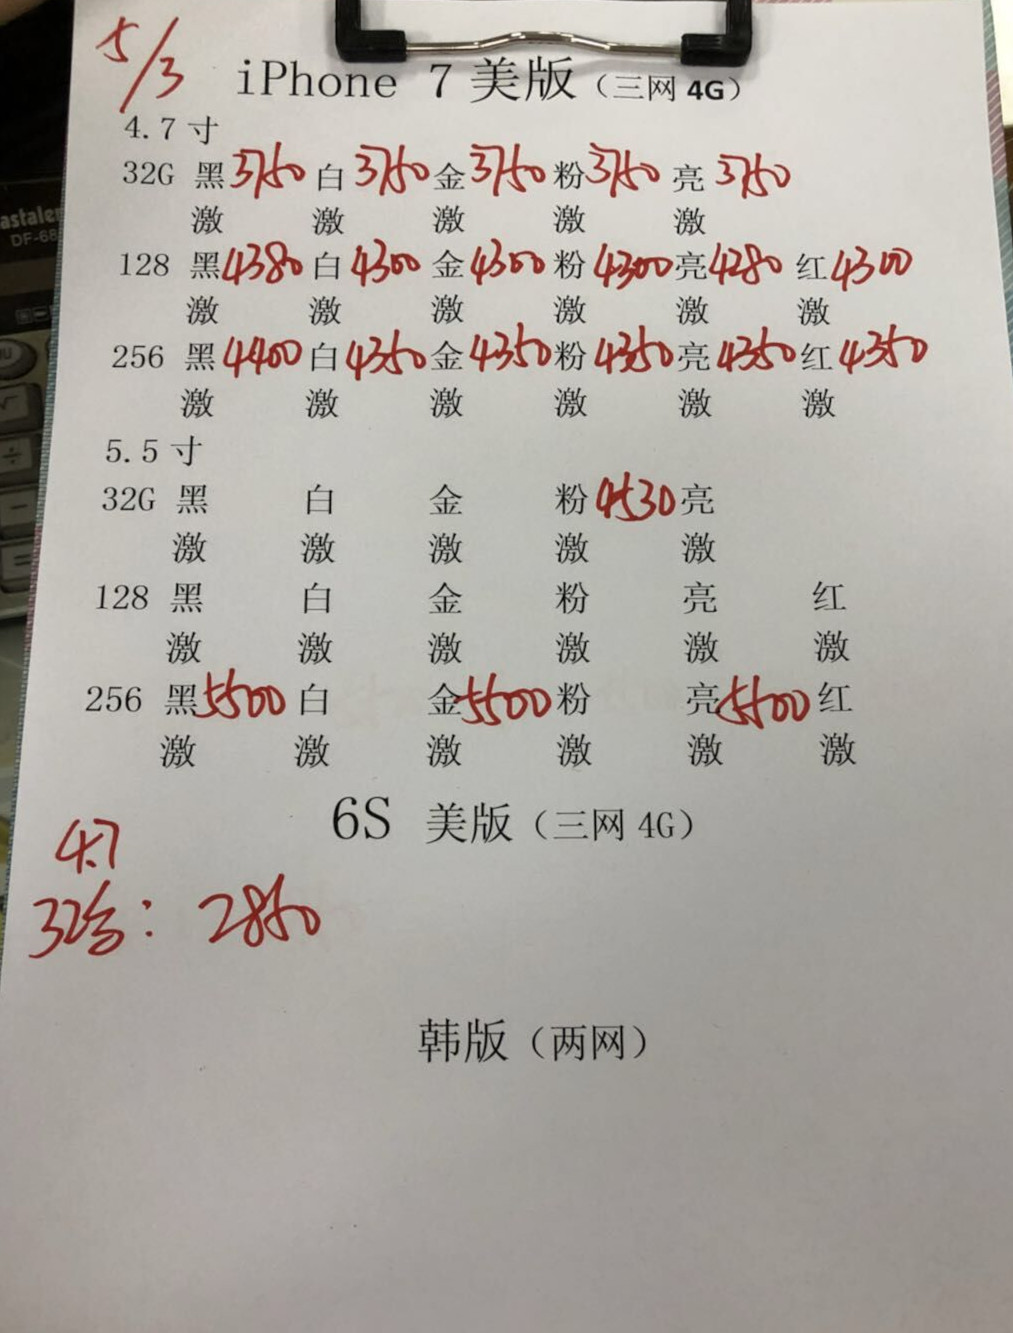 5/3
iPhone 7 美版（三网 4G）
4.7寸
32G 黑 3750 白 3750 金 3750 粉 3750 亮 3750
激 激 激 激 激
128 黑 4380 白 4300 金 4300 粉 4300 亮 4280 红 4300
激 激 激 激 激 激
256 黑 4400 白 4350 金 4350 粉 4350 亮 4350 红 4350
激 激 激 激 激 激
5.5寸
32G 黑 白 金 粉 4530 亮
激 激 激 激 激
128 黑 白 金 粉 亮 红
激 激 激 激 激 激
256 黑 5500 白 金 5500 粉 亮 5500 红
激 激 激 激 激 激
6S 美版（三网 4G）
4.7
32 : 2850
韩版（两网）
DF-68